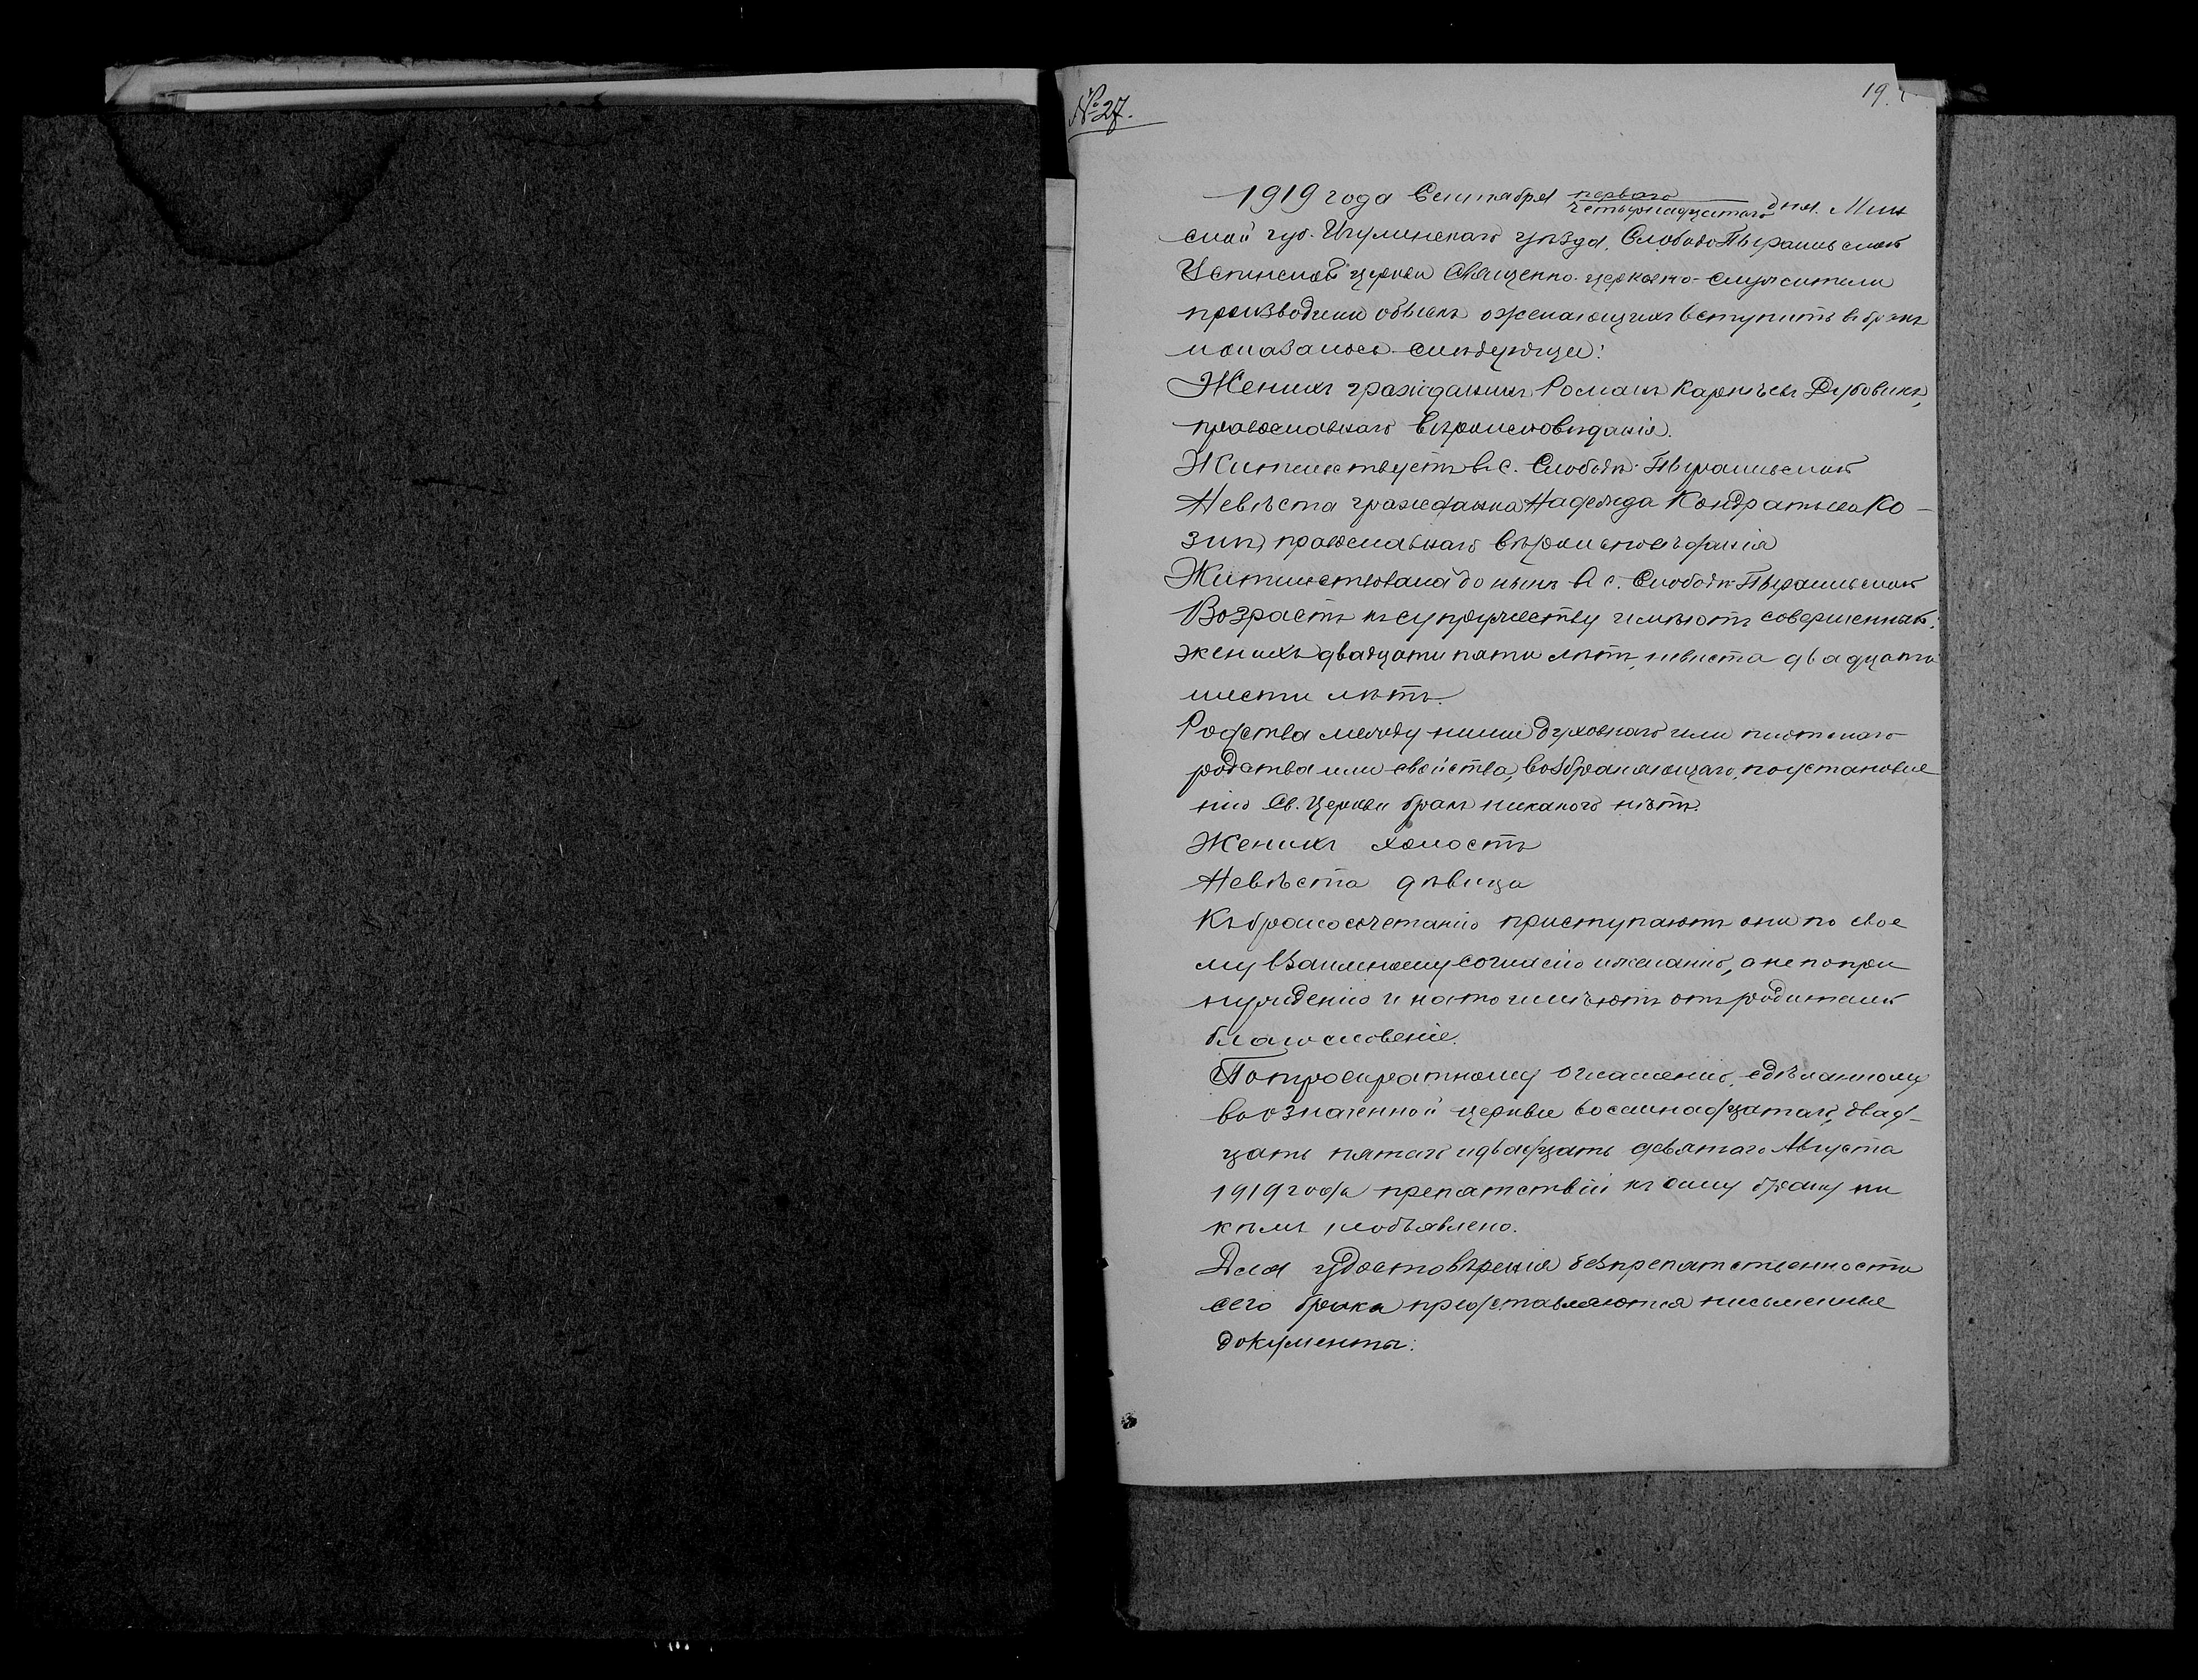 № 27.
19.
1919 года Сентября первого
четырнадцатаго дня. Мин
ской губ. Игуменскаго уѣзда, Слободо-Пырашевской
Успенской церкви Священно-церковно-служители
производили обыскъ о желающихъ вступить въ бракъ
и оказалось слѣдующее:
Женихъ гражданинъ Романъ Карпѣевъ Дубовикъ,
православнаго вѣроисповѣданія.
Жительствуетъ въ с. Слободѣ-Пырашевской
Невѣста гражданка Надежда Кондратьева Ко-
зинъ, православнаго вѣроисповѣданія
Жительствовала до нынѣ въ с. Слободѣ-Пырашевской
Возрастъ къ супружеству имѣютъ совершенный:
женихъ двадцати пяти лѣтъ, невѣста двадцати
шести лѣтъ.
Родства между ними духовнаго или плотскаго
родства или свойства, возбраняющаго, по установле
нію Св. Церкви бракъ никакого нѣтъ.
Женихъ холостъ
Невѣста дѣвица
Къ бракосочетанію приступаютъ они по свое
му взаимному согласію и желанію, а не по при
нужденію и на то имѣютъ отъ родителей
благословеніе.
По троекратному оглашенію, сдѣланному
въ означенной церкви восемнадцатаго, двад-
цать пятаго и двадцать девятаго Августа
1919 года препятствій къ сему браку ни
кѣмъ не объявлено.
Для удостовѣренія безпрепятственности
сего брака представляются письменные
документы: